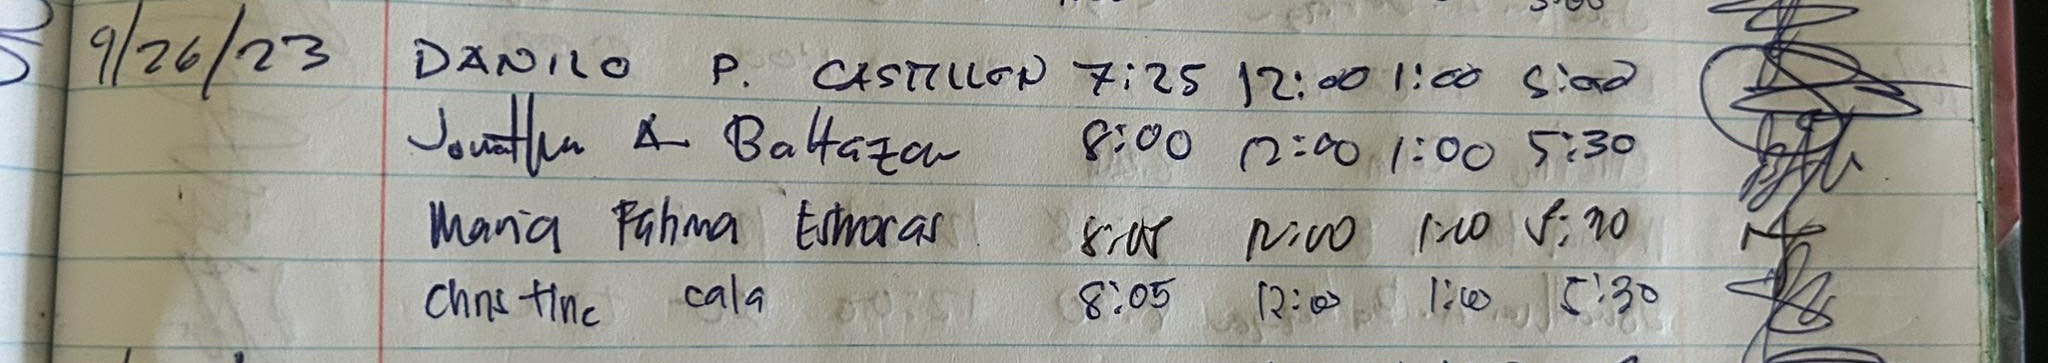 9/26/23 DANILO P. CASTILLON 7:25 12:00 1:00 5:00
Jonathan A Baltazar 8:00 12:00 1:00 5:30
Maria Fatima 8:05 12:00 1:00 5:30
Christine cala 8:05 12:00 1:00 5:30